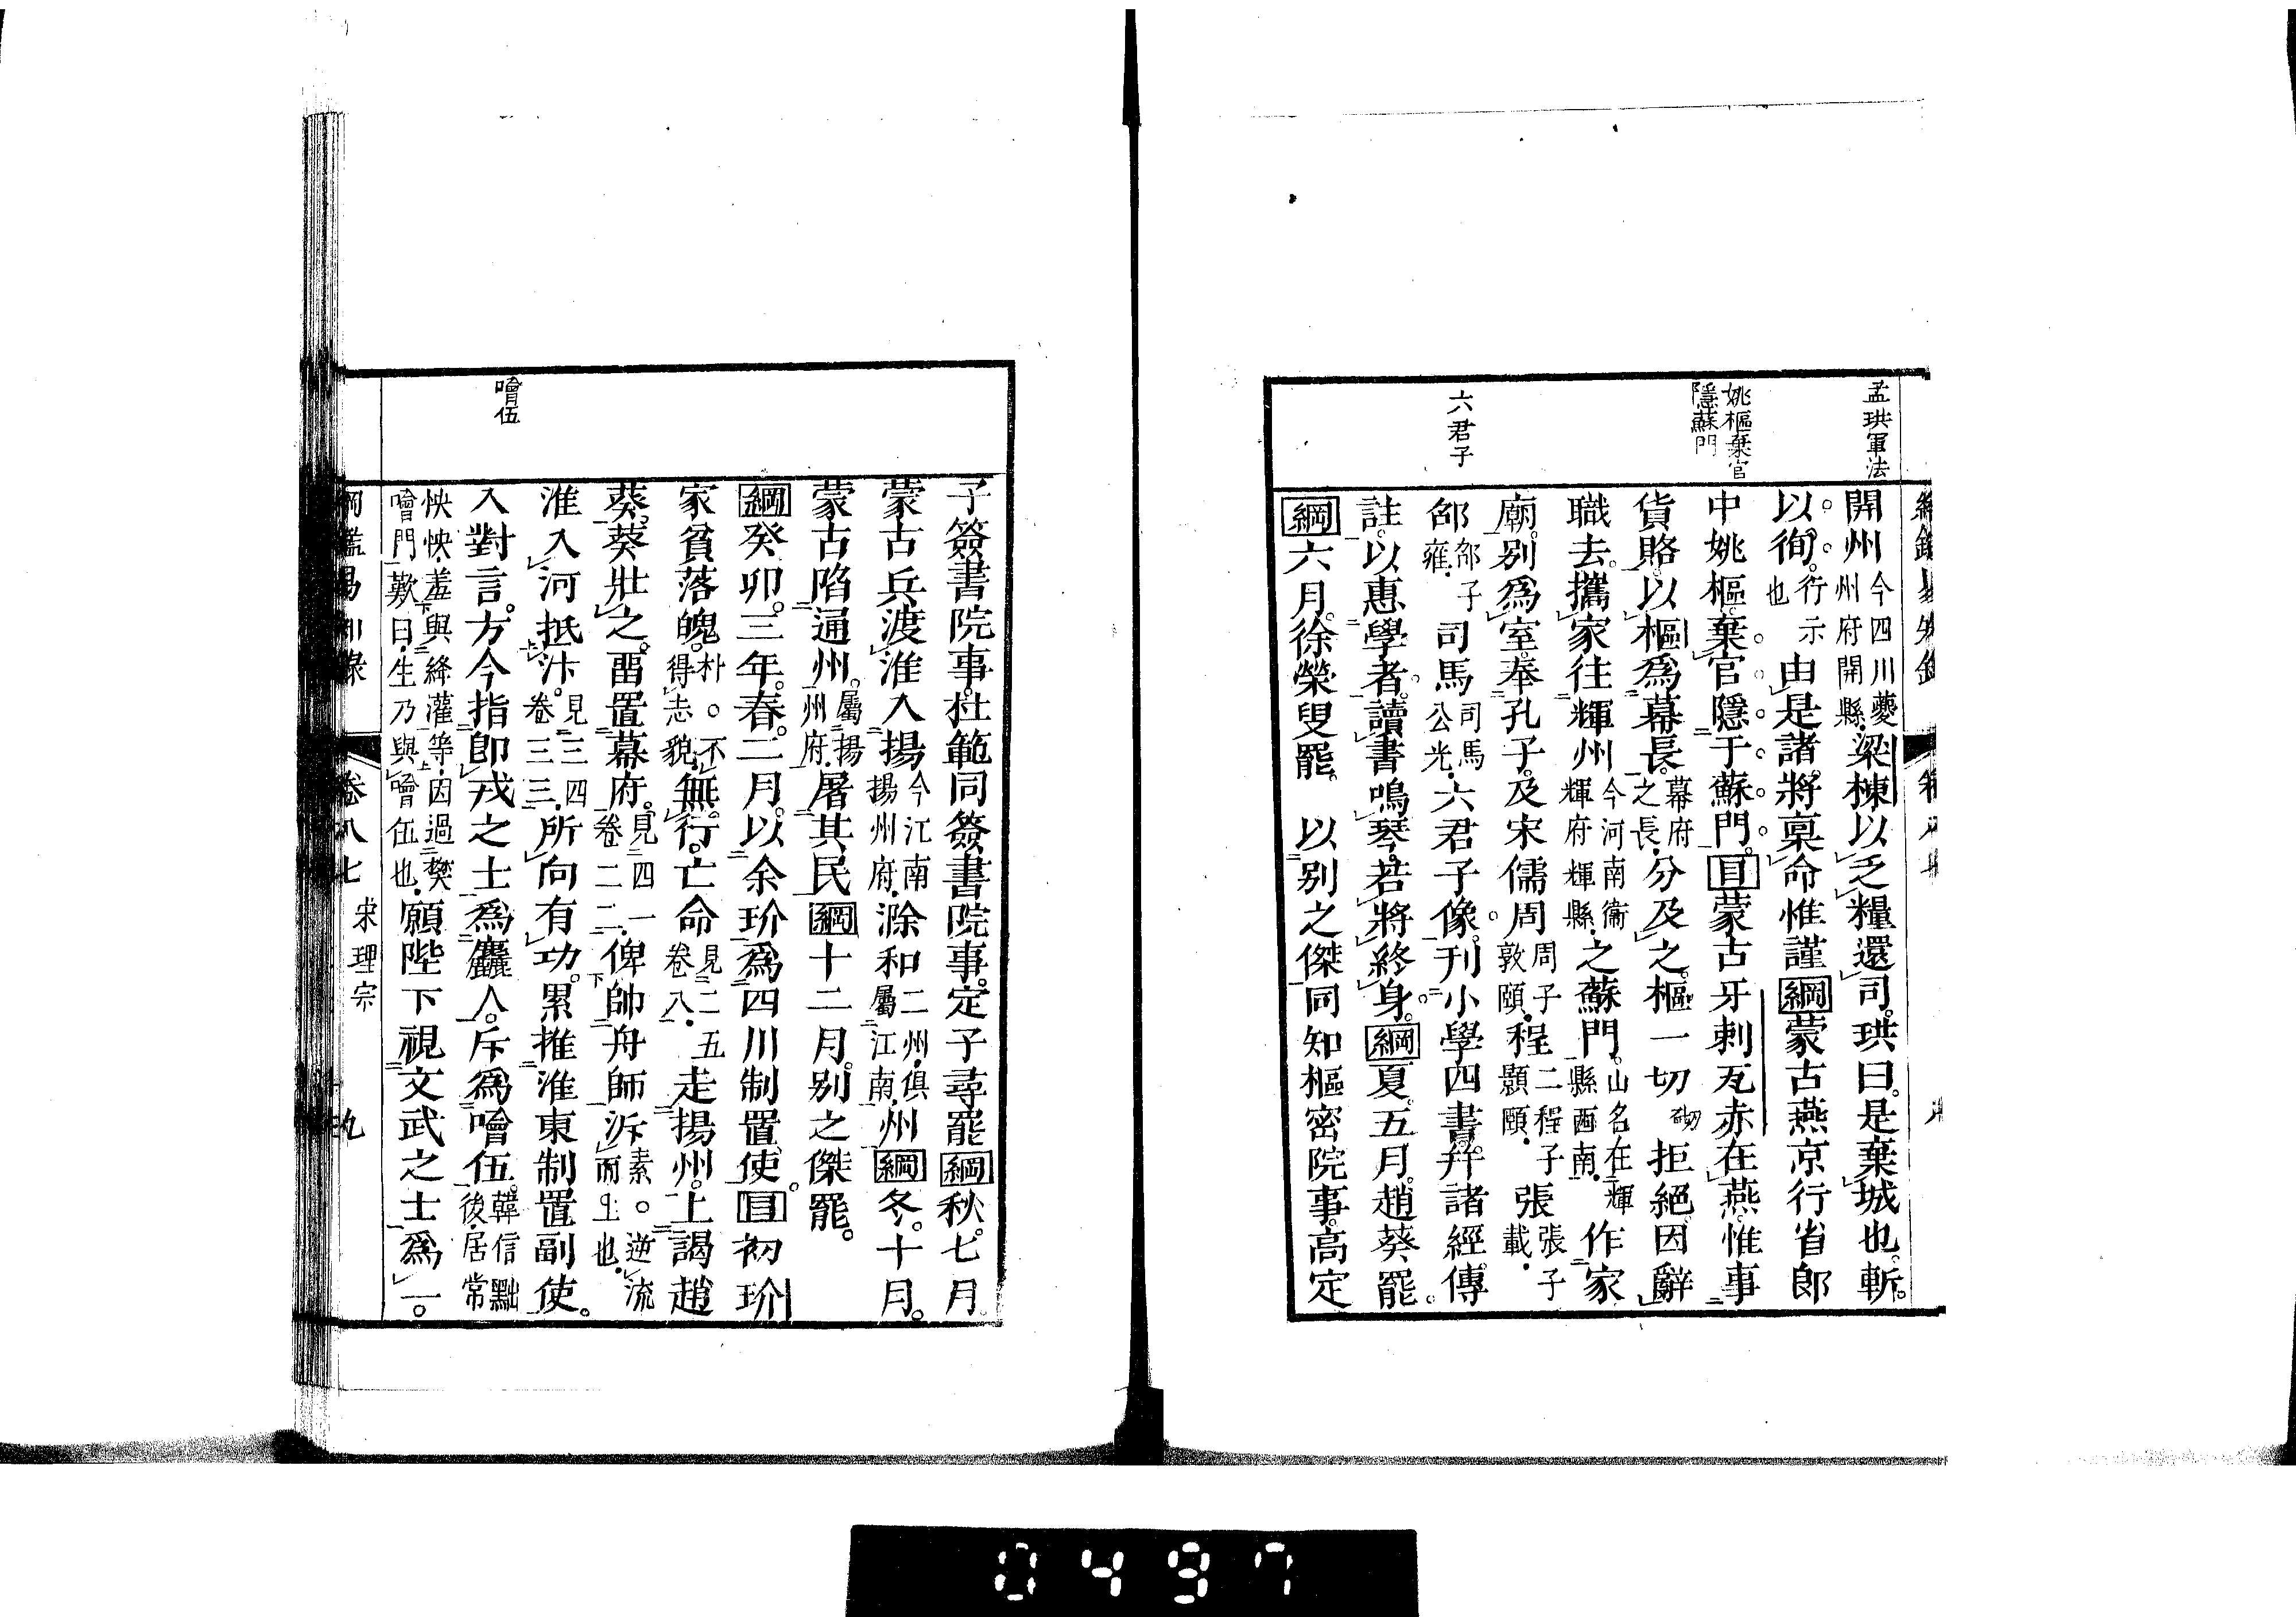 孟珙軍法
姚樞棄官
隱蘇門
六君子
開州今四川夔州府開縣梁棟以乏糧還司。珙曰。是棄城也。斬
以徇。行示也由是諸將稟命惟謹綱蒙古燕京行省郎
中姚樞棄官隱于蘇門。目蒙古牙剌瓦赤在燕。惟事
貨賂。以樞爲幕長。幕府之長分及之。樞一切砌拒絕。因辭
職去。攜家往輝州今河南衞輝府輝縣之蘇門。山名在輝縣西南作家
廟。別爲室。奉孔子。及宋儒周周子敦頤程二程子顥頤張張子載
邵邵子雍司馬司馬公光六君子像。刊小學四書。并諸經傳
註。以惠學者。讀書鳴琴。若將終身。綱夏。五月。趙葵罷。
綱六月。徐榮叟罷。以別之傑同知樞密院事。高定
子簽書院事。杜範同簽書院事。定子尋罷綱秋。七月。
蒙古兵渡淮入揚今江南揚州府滁和二州俱屬江南州綱冬。十月。
蒙古陷通州。屬揚州府屠其民綱十二月。別之傑罷。
綱癸卯。三年。春。二月。以余玠爲四川制置使。目初玠
家貧落魄。朴。不得志貌無行。亡命見二五卷八走揚州。上謁趙
葵。葵壯之。畱置幕府。見四一卷二二俾帥舟師泝素。逆流而上也
淮入河抵汴。見三四卷三三所向有功。累推淮東制置副使。
入對言。方今指卽戎之士爲麤人。斥爲噲伍。韓信黜後居常
怏怏羞與絳灌等因過樊噲門歎曰生乃與噲伍也願陛下視文武之士爲一。
噲伍
綱鑑易知錄 卷八七 宋理宗 九
0497